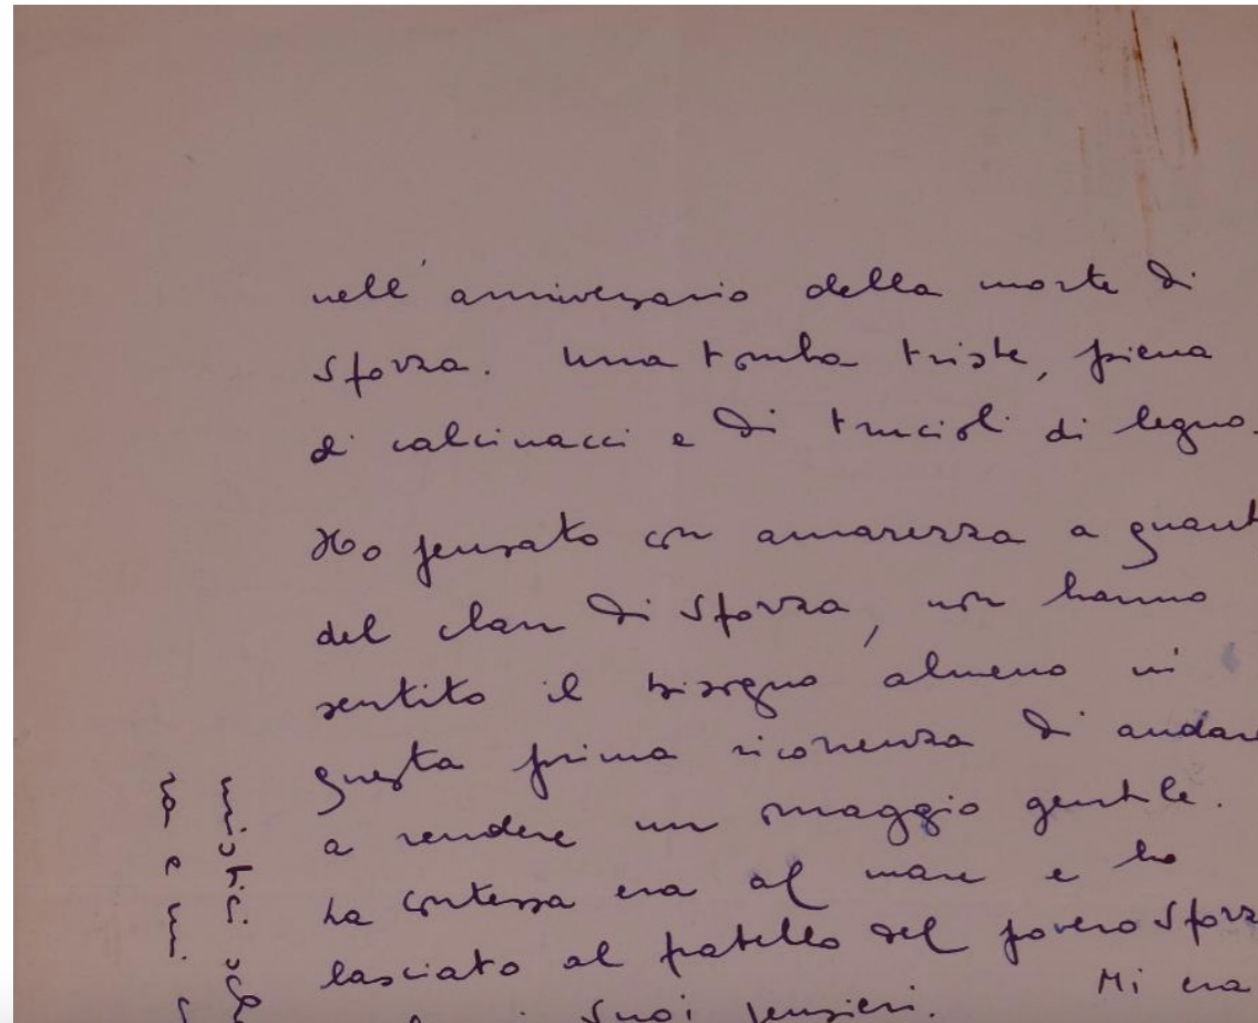 nell'anniversario della morte di
Sforza. Una tomba triste, piena
di calcinacci e di trucioli di legno.
Ho pensato con amarezza a quant
del clan di Sforza, non hanno
sentito il bisogno almeno in
questa prima ricorrenza di andare
a rendere un omaggio gentile.
La contessa era al mare e ha
lasciato al fratello del povero Sforz
suoi pensieri. Mi era